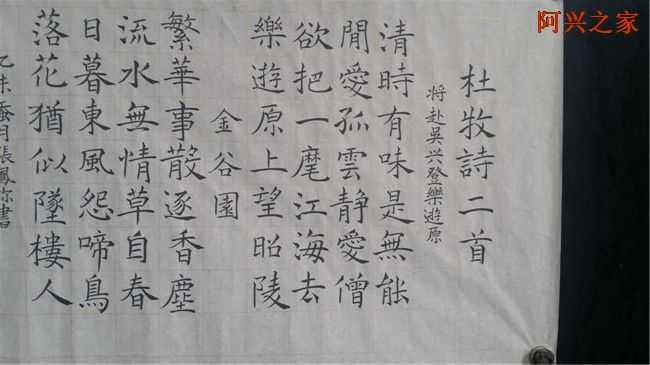 阿兴之家
杜牧詩二首
将赴吳兴登樂遊原
清時有味是無能
閒愛孤雲靜愛僧
欲把一麾江海去
樂遊原上望昭陵
金谷園
繁華事散逐香塵
流水無情草自春
日暮東風怨啼鳥
落花猶似墜樓人
乙未蚕月張鳳弥書